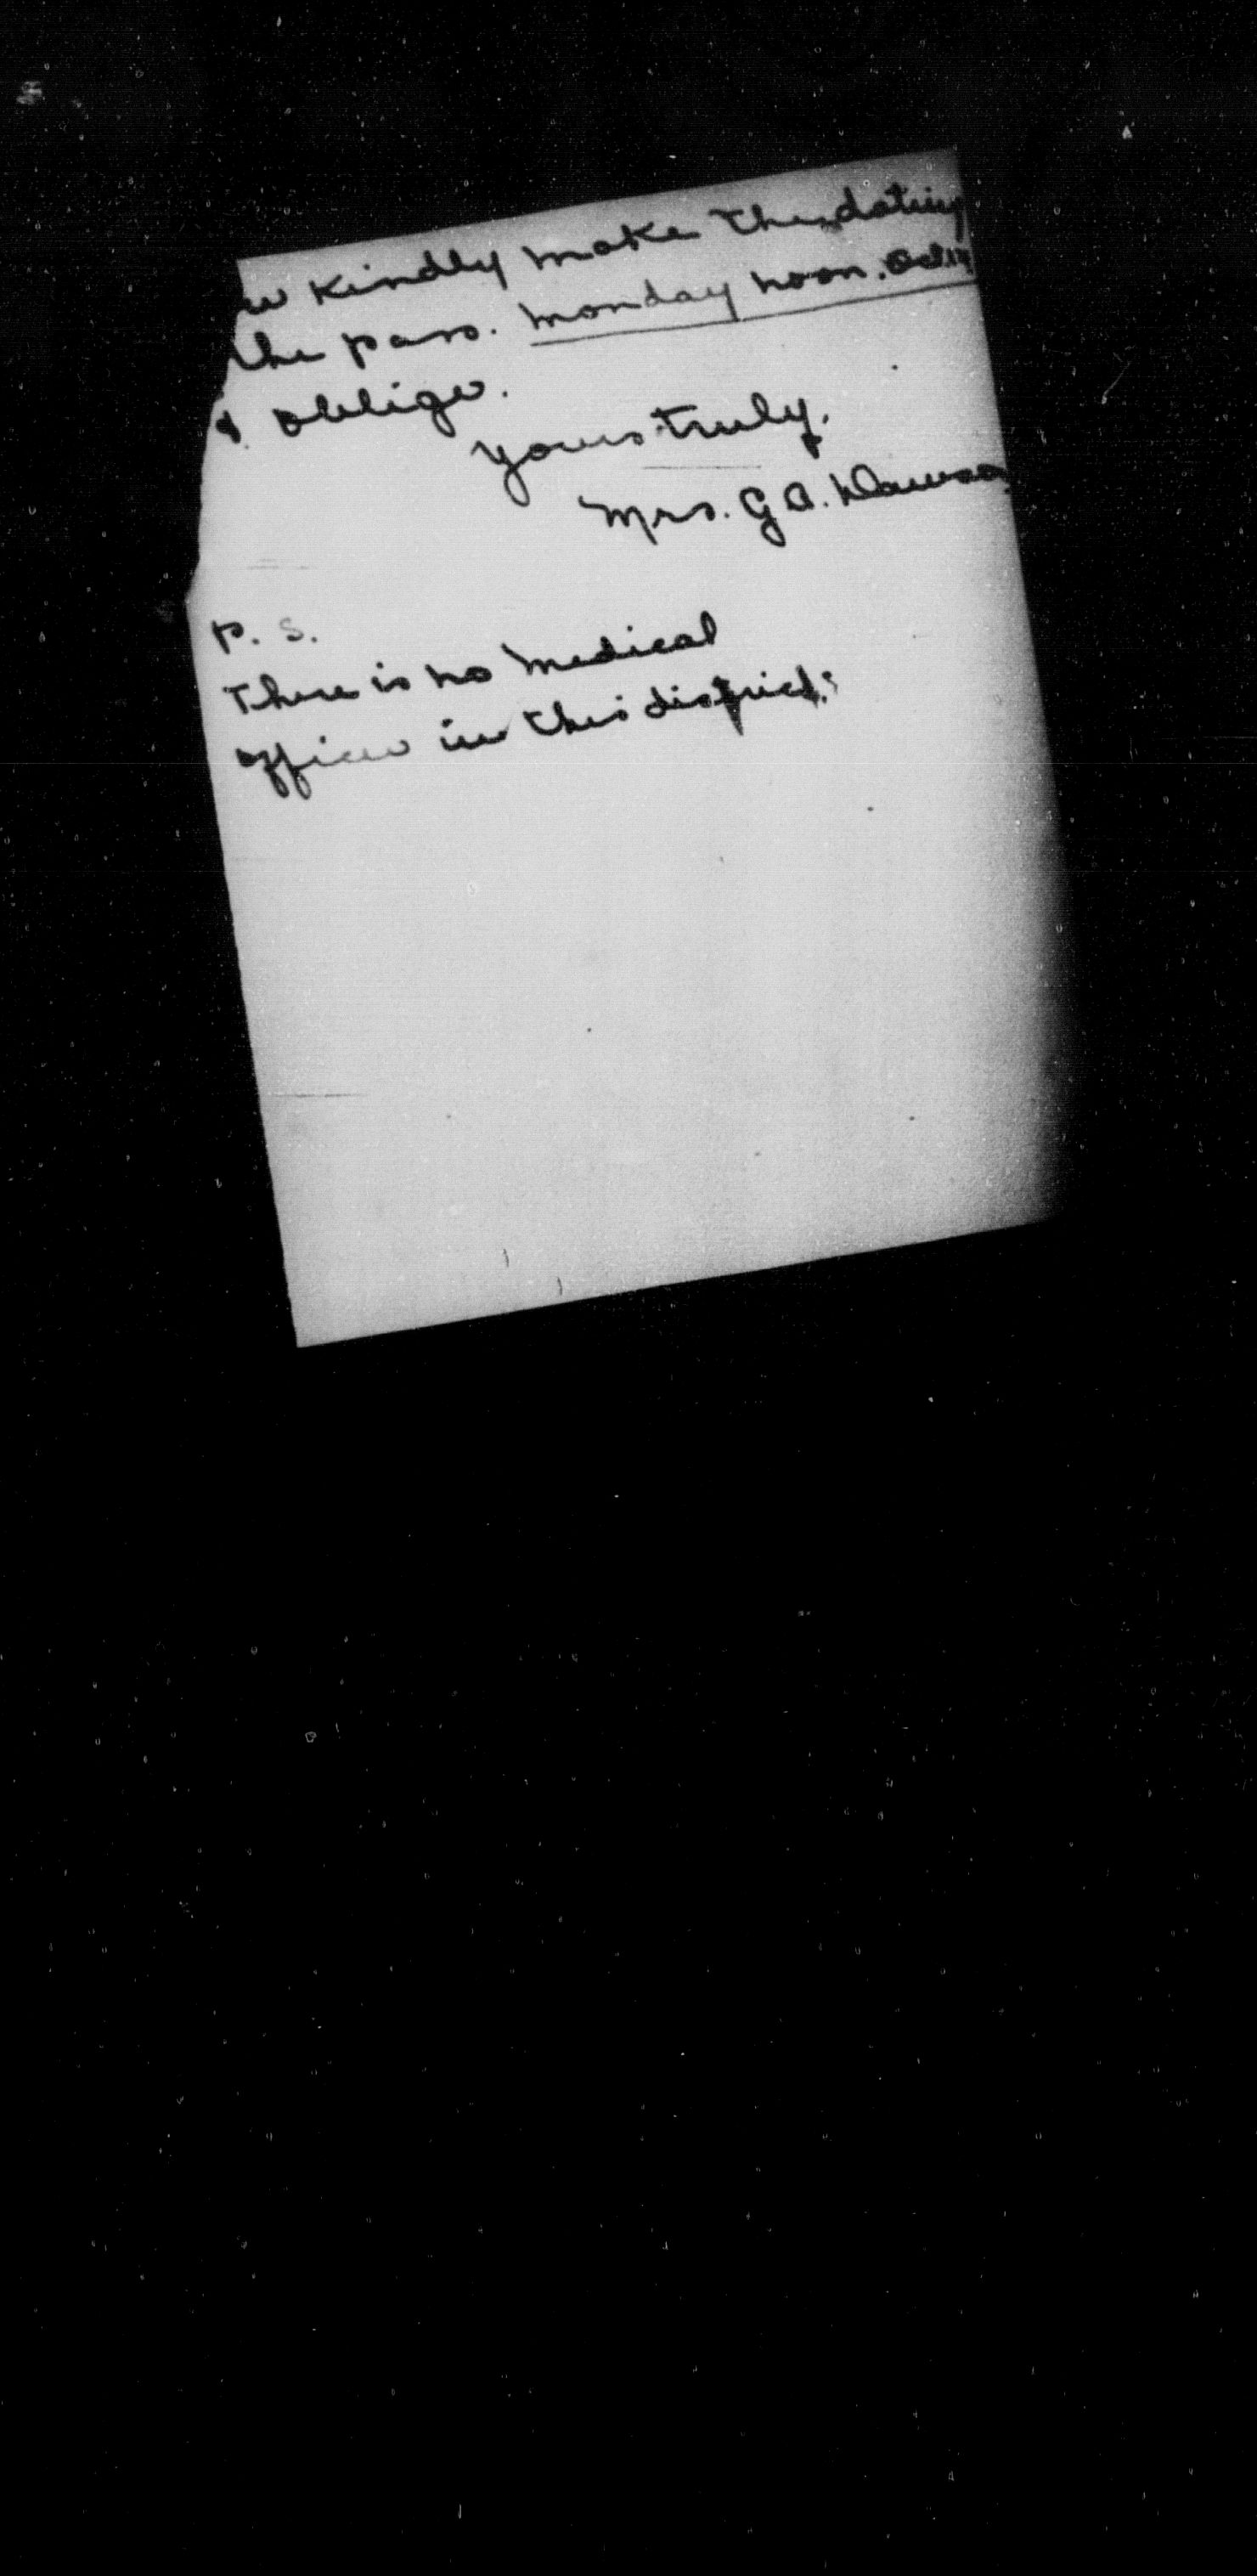 Kindly make the dating
the pass. Monday noon. Oct. 14
& oblige.
Yours truly.
Mrs. G A. Dawson
P. S.
There is no medical
officer in this district.